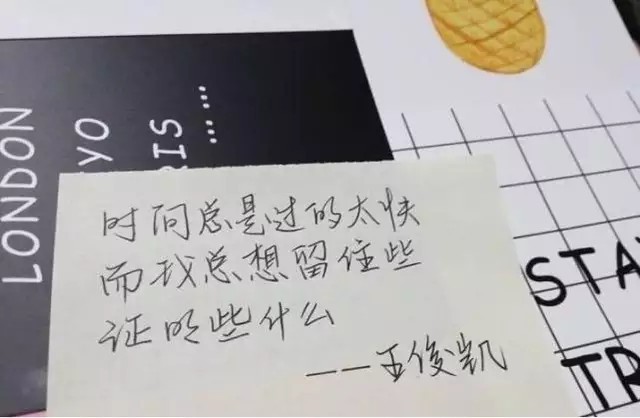 LONDON
YO
RIS
... ...
时间总是过的太快
而我总想留住些
证明些什么
——王俊凯
STA
TR